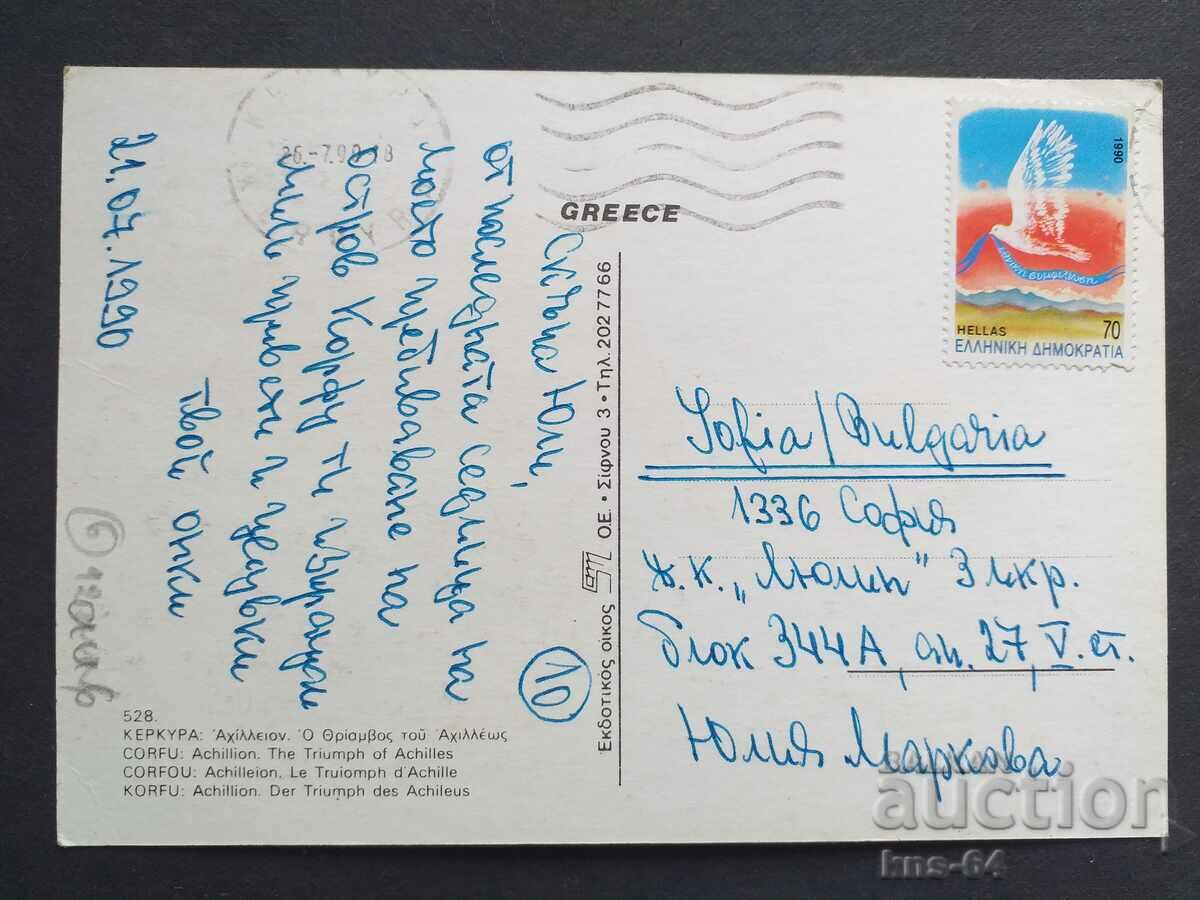 GREECE
26.-7.90 18
1990
εθνική συμφιλίωση
HELLAS 70
ΕΛΛΗΝΙΚΗ ΔΗΜΟΚΡΑΤΙΑ
Скъпа Юли,
от последната седмица на
моето пребиваване на
остров Корфу ти изпращам
мили привети и целувки
твой
21.07.1990
10
6
528.
ΚΕΡΚΥΡΑ: Ἀχίλλειον. Ὁ Θρίαμβος τοῦ Ἀχιλλέως
CORFU: Achillion. The Triumph of Achilles
CORFOU: Achilleion. Le Truiomph d'Achille
KORFU: Achillion. Der Triumph des Achileus
Εκδοτικός οίκος ΟΕ. • Σίφνου 3 • Τηλ. 2027766
Sofia/Bulgaria
1336 София
ж.к. „Люлин" 3 мкр.
блок 344А, ап. 27, V. ет.
Юлия Маркова
BALKAN
auction
kns-64